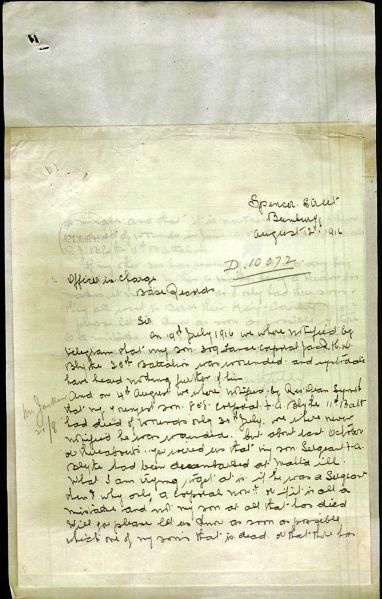 Spencer Street
Bunbury
August 12th 1916
D. 10072
Officer in Charge
Base Records
Sir
On 19th July 1916 we where notified by
telegram that my son 309 Lance corporal
Blythe 30th Battalion was wounded and
have heard nothing further of him
And on 4th August we where notified by
that my younger son 805 corporal F.A. Blythe 11th Batt
had died of wounds only 30th July, we where never
notified he was wounded, but about last October
or thereabouts you wired us that my son Sergeant F.A.
Blythe had been disembarked at Malta ill
What I am trying to get at is if he was a Sergeant
then why only a corporal now or if it is all a
mistake and not my son at all that has died
Will you please let us know as soon as possible
which one of my sons that is dead or that there has
21/8